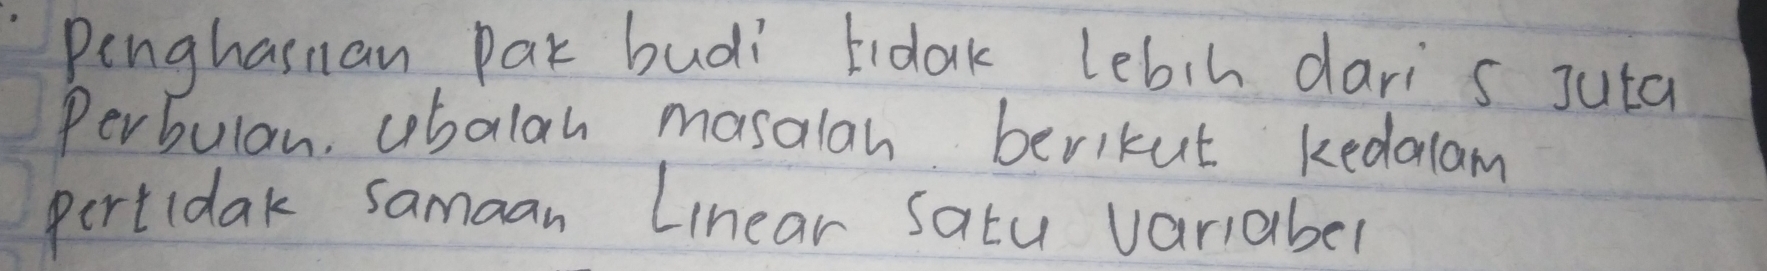 Penghasilan Pak budi tidak lebih dari 5 Juta
Perbulan. Ubalah masalah berikut kedalam
pertidak samaan Linear satu variabel